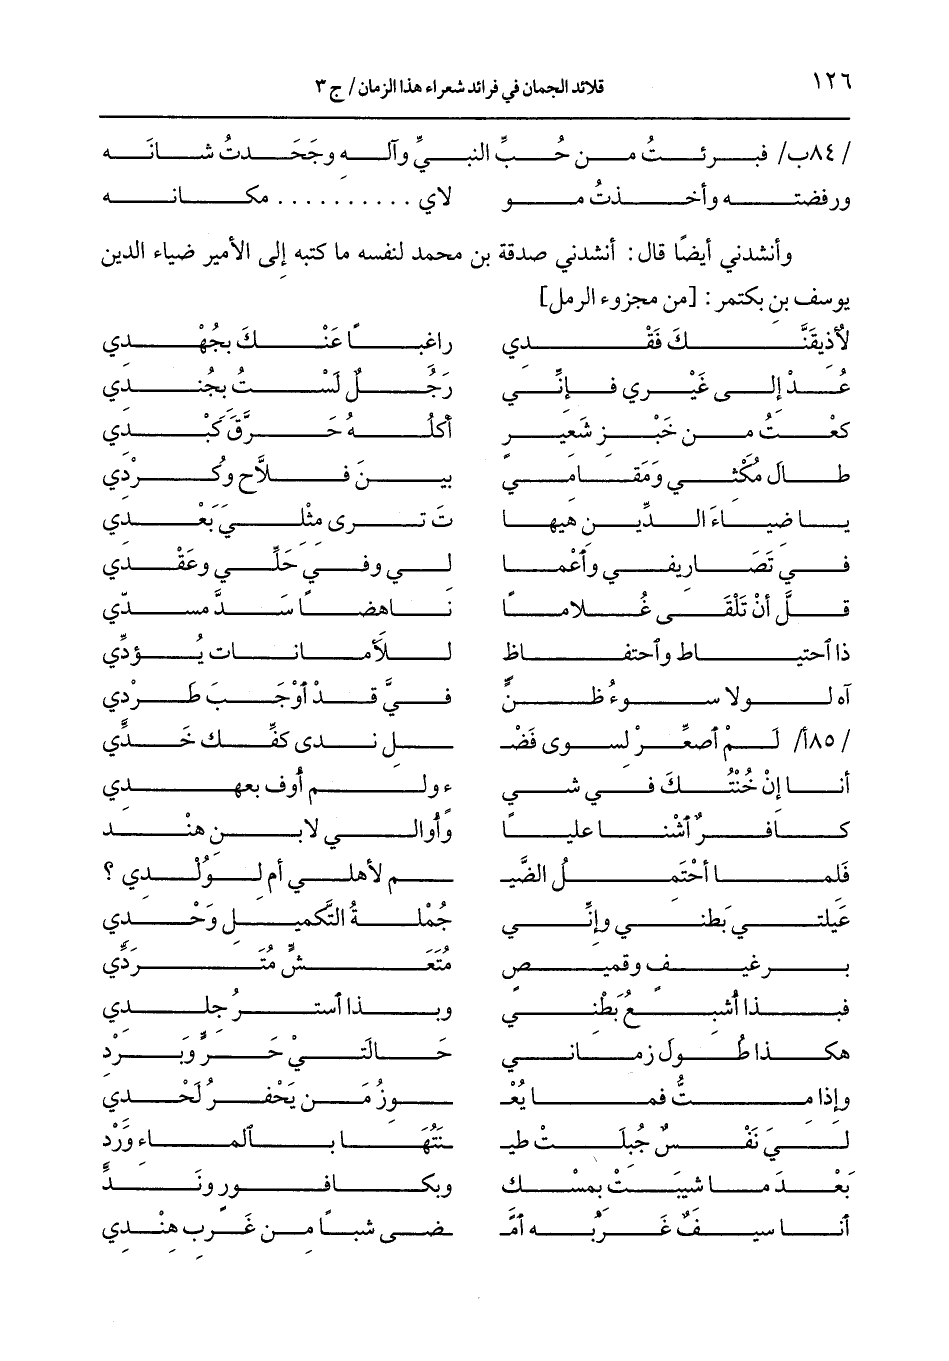 ١٢٦ قلائد الجمان في فرائد شعراء هذا الزمان/ ج ٣
/٨٤ب/ فبرئتُ من حُبِّ النبيِّ وآله وجَحَدتُ شانَه
ورفضته وأخذتُ مو لاي .......... مكانه
وأنشدني أيضًا قال: أنشدني صدقة بن محمد لنفسه ما كتبه إلى الأمير ضياء الدين
يوسف بن بكتمر: [من مجزوء الرمل]
لأذيقَنَّكَ فَقْدي راغبًا عَنْكَ بجُهْدي
عُدْ إلى غَيْري فإنِّي رَجُلٌ لَسْتُ بجُندي
كعْتُ من خَبْزِ شَعيرٍ أكلُهُ حَرَّقَ كَبْدي
طالَ مُكْثي وَمَقامي بينَ فلاَّحٍ وكُرْدِي
يا ضياءَ الدِّينِ هيها تَ ترى مثْلِيَ بَعْدي
في تَصَاريفي وأعْما لي وفي حَلِّي وعَقْدي
قلَّ أنْ تَلْقَى غُلامًا ناهضًا سَدَّ مسدّي
ذا ٱحتياط وٱحتفاظ للأمانات يُؤدِّي
آه لولا سوءُ ظنٍّ فيَّ قدْ أوْجَبَ طَرْدي
/٨٥أ/ لَمْ أصعِّرْ لسوى فَضْـ ـل ندى كفِّك خَدِّي
أنا إنْ خُنْتُكَ في شي ء ولم أوف بعهدي
كافرٌ أشْنا عليًا وَأُوالي لابن هنْد
فَلِما أحْتَملُ الضَّيـ ـم لأهلي أم لِوُلْدي ؟
عَيلتي بَطني وإنِّي جُمْلةُ التَّكميلِ وَحْدي
برغيفٍ وقميصٍ مُتَعَشٍّ مُتَرَدِّي
فبذا أُشبعُ بَطْني وبذا أسترُ جلدي
هكذا طُول زماني حَالَتيْ حَرٍّ وَبَرْد
وإذا متُّ فما يُعْـ ـوزُ مَن يَحْفرُ لَحْدي
ليَ نَفْسٌ جُبلَتْ طيـ ـنَتُهَا بالماء وَرْد
بَعْدَ ما شيبَتْ بمسْك وبكافورٍ ونَدِّ
أنا سيفٌ غَرْبُه أمْـ ـضى شبًا من غَرب هِنْدي